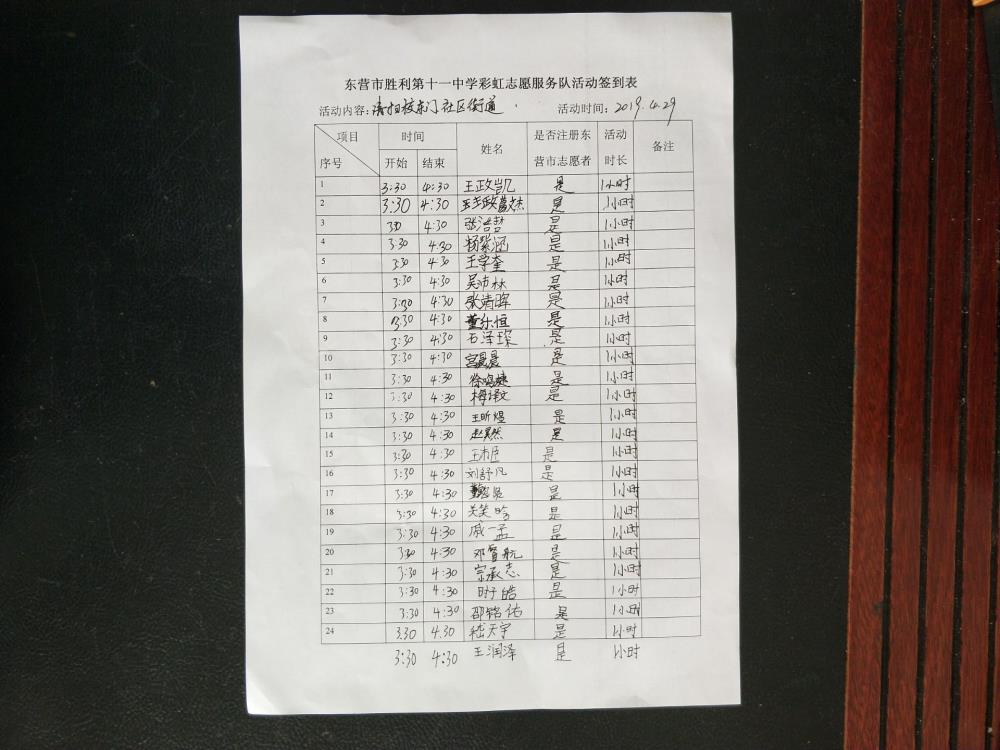 东营市胜利第十一中学彩虹志愿服务队活动签到表
活动内容：清扫校东门社区街道 活动时间：2019.4.29
项目 时间 姓名 是否注册东营市志愿者 活动时长 备注
序号 开始 结束
1 3:30 4:30 王政凯 是 1小时
2 3:30 4:30 是 1小时
3 3:30 4:30 张浩哲 是 1小时
4 3:30 4:30 杨紫涵 是 1小时
5 3:30 4:30 王学奎 是 1小时
6 3:30 4:30 吴沛林 是 1小时
7 3:30 4:30 张靖晖 是 1小时
8 3:30 4:30 董乐恒 是 1小时
9 3:30 4:30 石泽琛 是 1小时
10 3:30 4:30 宫晨晨 是 1小时
11 3:30 4:30 徐鸣婕 是 1小时
12 3:30 4:30 是 1小时
13 3:30 4:30 王昕煜 是 1小时
14 3:30 4:30 赵昊然 是 1小时
15 3:30 4:30 是 1小时
16 3:30 4:30 刘舒凡 是 1小时
17 3:30 4:30 是 1小时
18 3:30 4:30 关笑晗 是 1小时
19 3:30 4:30 戚一孟 是 1小时
20 3:30 4:30 邓智航 是 1小时
21 3:30 4:30 宗承志 是 1小时
22 3:30 4:30 时子皓 是 1小时
23 3:30 4:30 邵铭佑 是 1小时
24 3:30 4:30 嵇天宇 是 1小时
3:30 4:30 王润泽 是 1小时